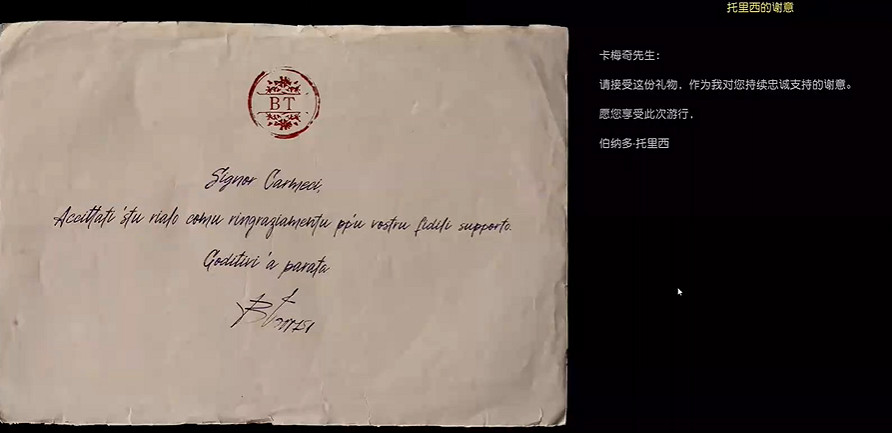 托里西的谢意
BT
Signor Carmeci,
Accittati 'stu rialo comu ringraziamentu ppi'u vostru fidili supporto.
Goditivi 'a parata
BTorrisi
卡梅奇先生：
请接受这份礼物，作为我对您持续忠诚支持的谢意。
愿您享受此次游行，
伯纳多·托里西